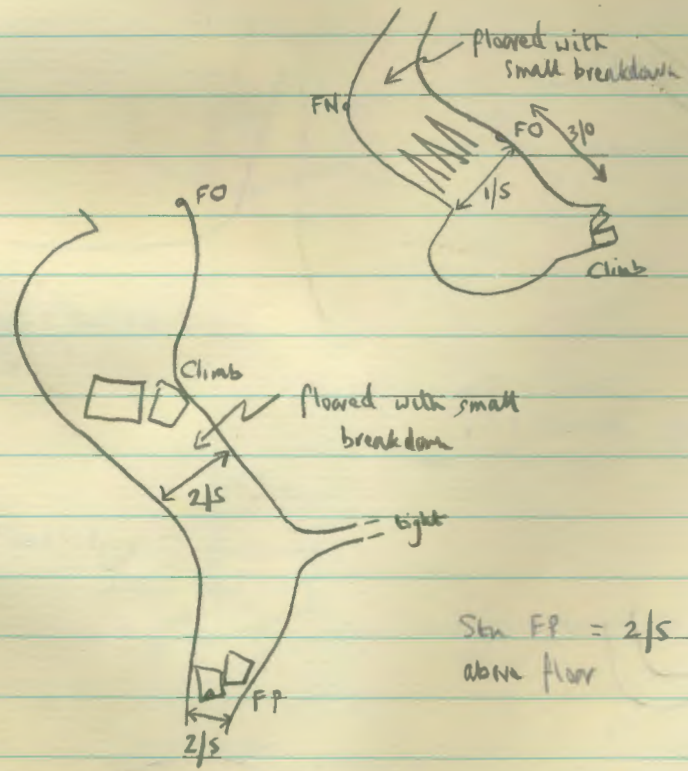 floored with
small breakdown
FN
FO
3/0
1/5
Climb
FO
Climb
floored with small
breakdown
2/5
tight
Stn FP = 2/5
above floor
FP
2/5